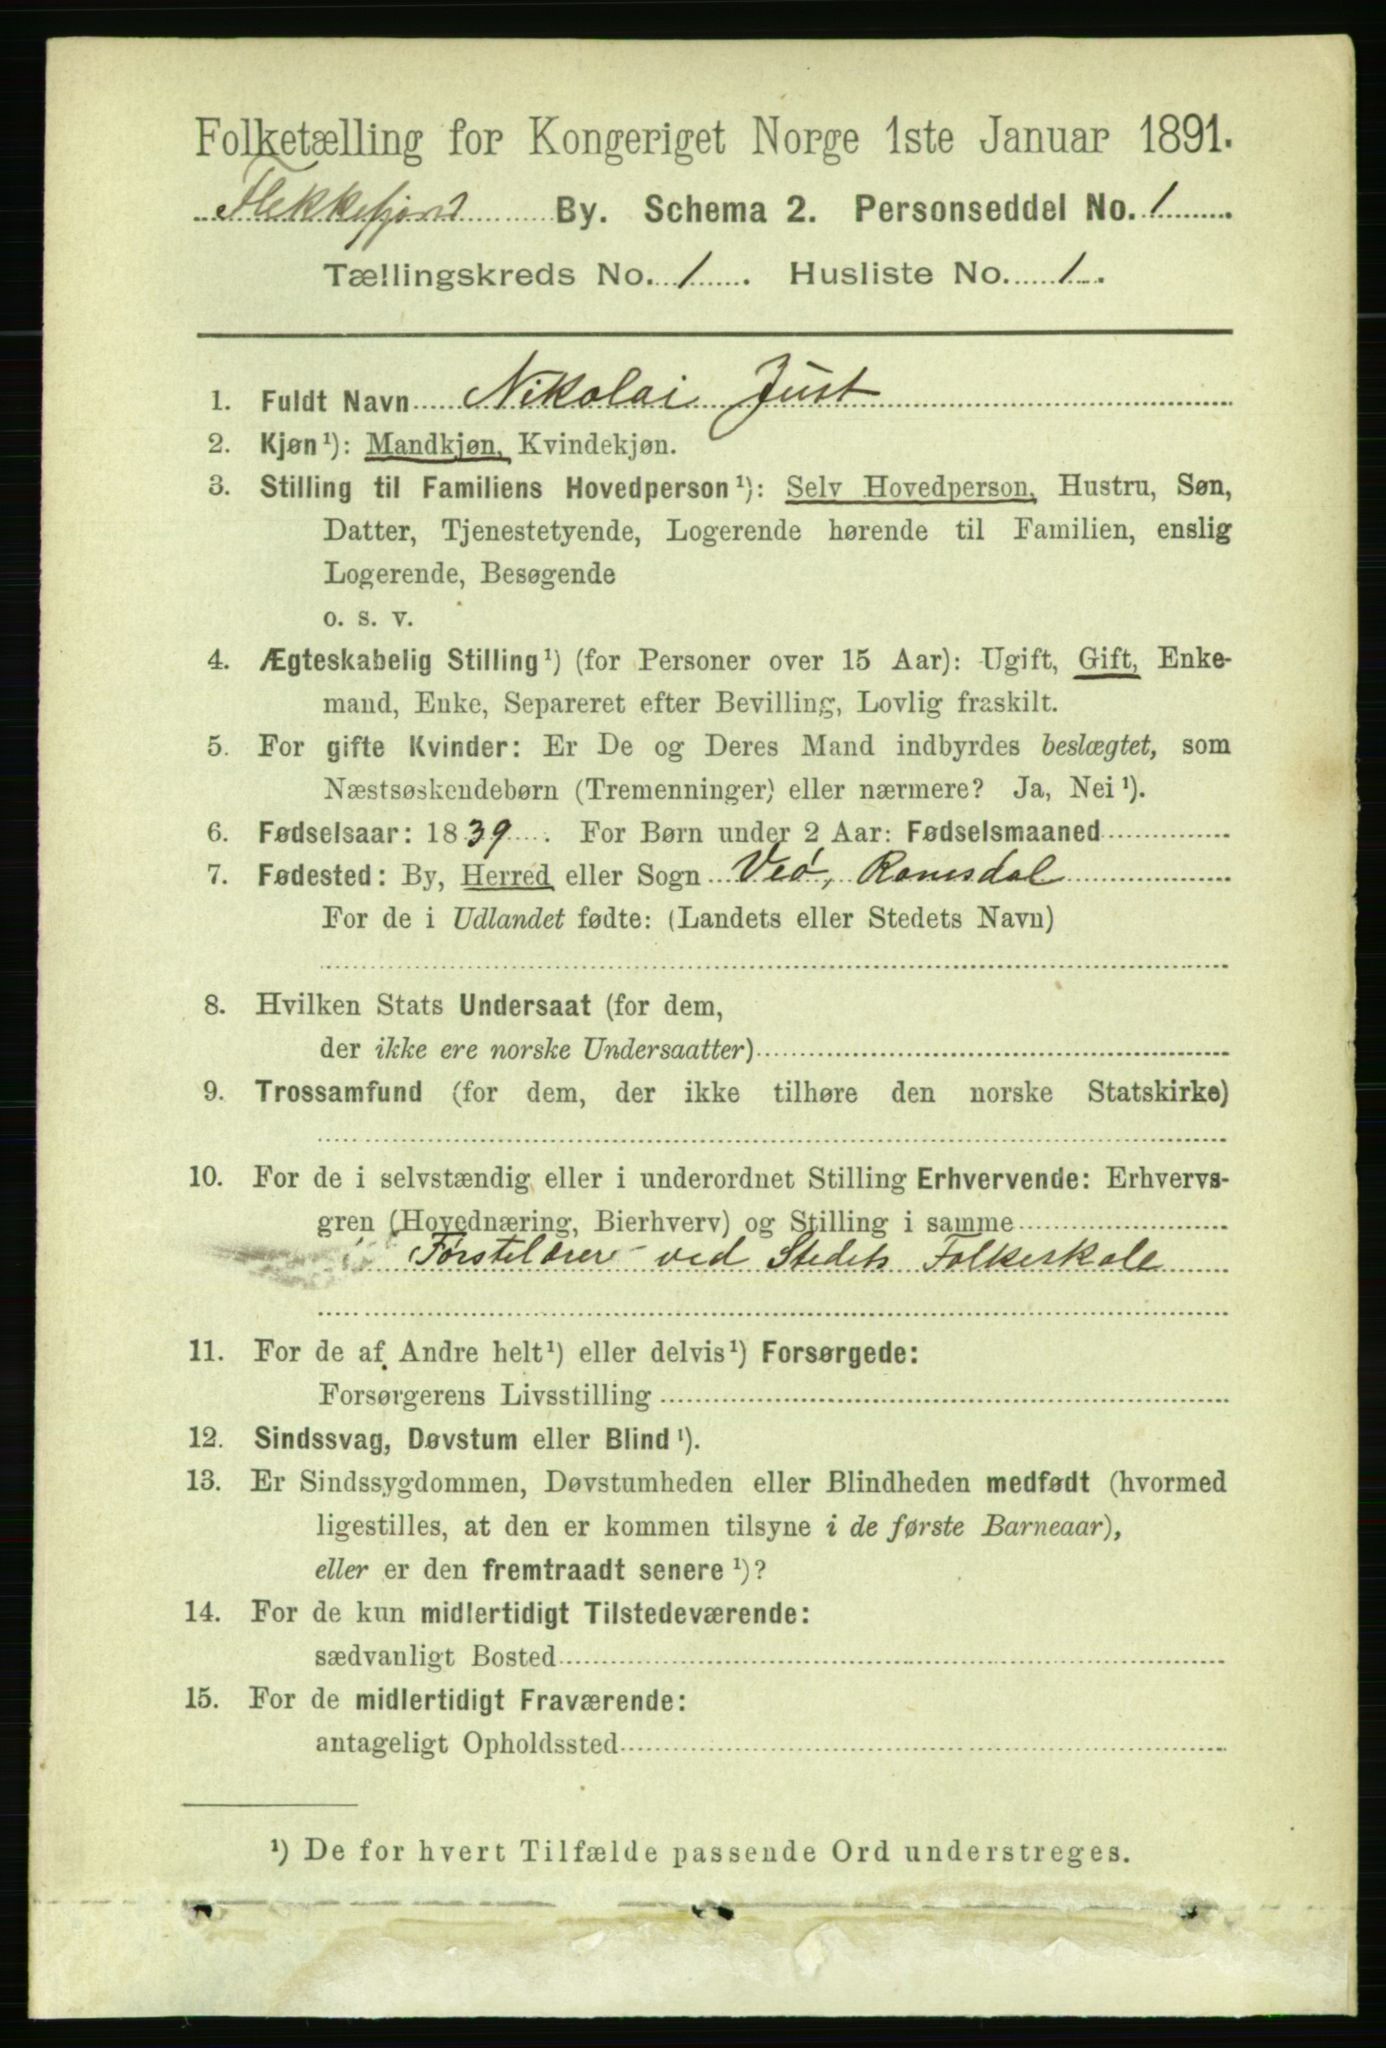 Folketælling for Kongeriget Norge 1ste Januar 1891.
Flekkefjord By. Schema 2. Personseddel No. 1
Tællingskreds No. 1. Husliste No. 1.
1. Fuldt Navn Nikolai Just
2. Kjøn¹): Mandkjøn, Kvindekjøn.
3. Stilling til Familiens Hovedperson¹): Selv Hovedperson, Hustru, Søn,
Datter, Tjenestetyende, Logerende hørende til Familien, enslig
Logerende, Besøgende
o. s. v.
4. Ægteskabelig Stilling¹) (for Personer over 15 Aar): Ugift, Gift, Enke-
mand, Enke, Separeret efter Bevilling, Lovlig fraskilt.
5. For gifte Kvinder: Er De og Deres Mand indbyrdes beslægtet, som
Næstsøskendebørn (Tremenninger) eller nærmere? Ja, Nei¹).
6. Fødselsaar: 1839. For Børn under 2 Aar: Fødselsmaaned
7. Fødested: By, Herred eller Sogn Veø, Romsdal
For de i Udlandet fødte: (Landets eller Stedets Navn)
8. Hvilken Stats Undersaat (for dem,
der ikke ere norske Undersaatter)
9. Trossamfund (for dem, der ikke tilhøre den norske Statskirke)
10. For de i selvstændig eller i underordnet Stilling Erhvervende: Erhvervs-
gren (Hovednæring, Bierhverv) og Stilling i samme
Førstelærer ved Stedets Folkeskole
11. For de af Andre helt¹) eller delvis¹) Forsørgede:
Forsørgerens Livsstilling
12. Sindssvag, Døvstum eller Blind¹).
13. Er Sindssygdommen, Døvstumheden eller Blindheden medfødt (hvormed
ligestilles, at den er kommen tilsyne i de første Barneaar),
eller er den fremtraadt senere¹)?
14. For de kun midlertidigt Tilstedeværende:
sædvanligt Bosted
15. For de midlertidigt Fraværende:
antageligt Opholdssted
¹) De for hvert Tilfælde passende Ord understreges.